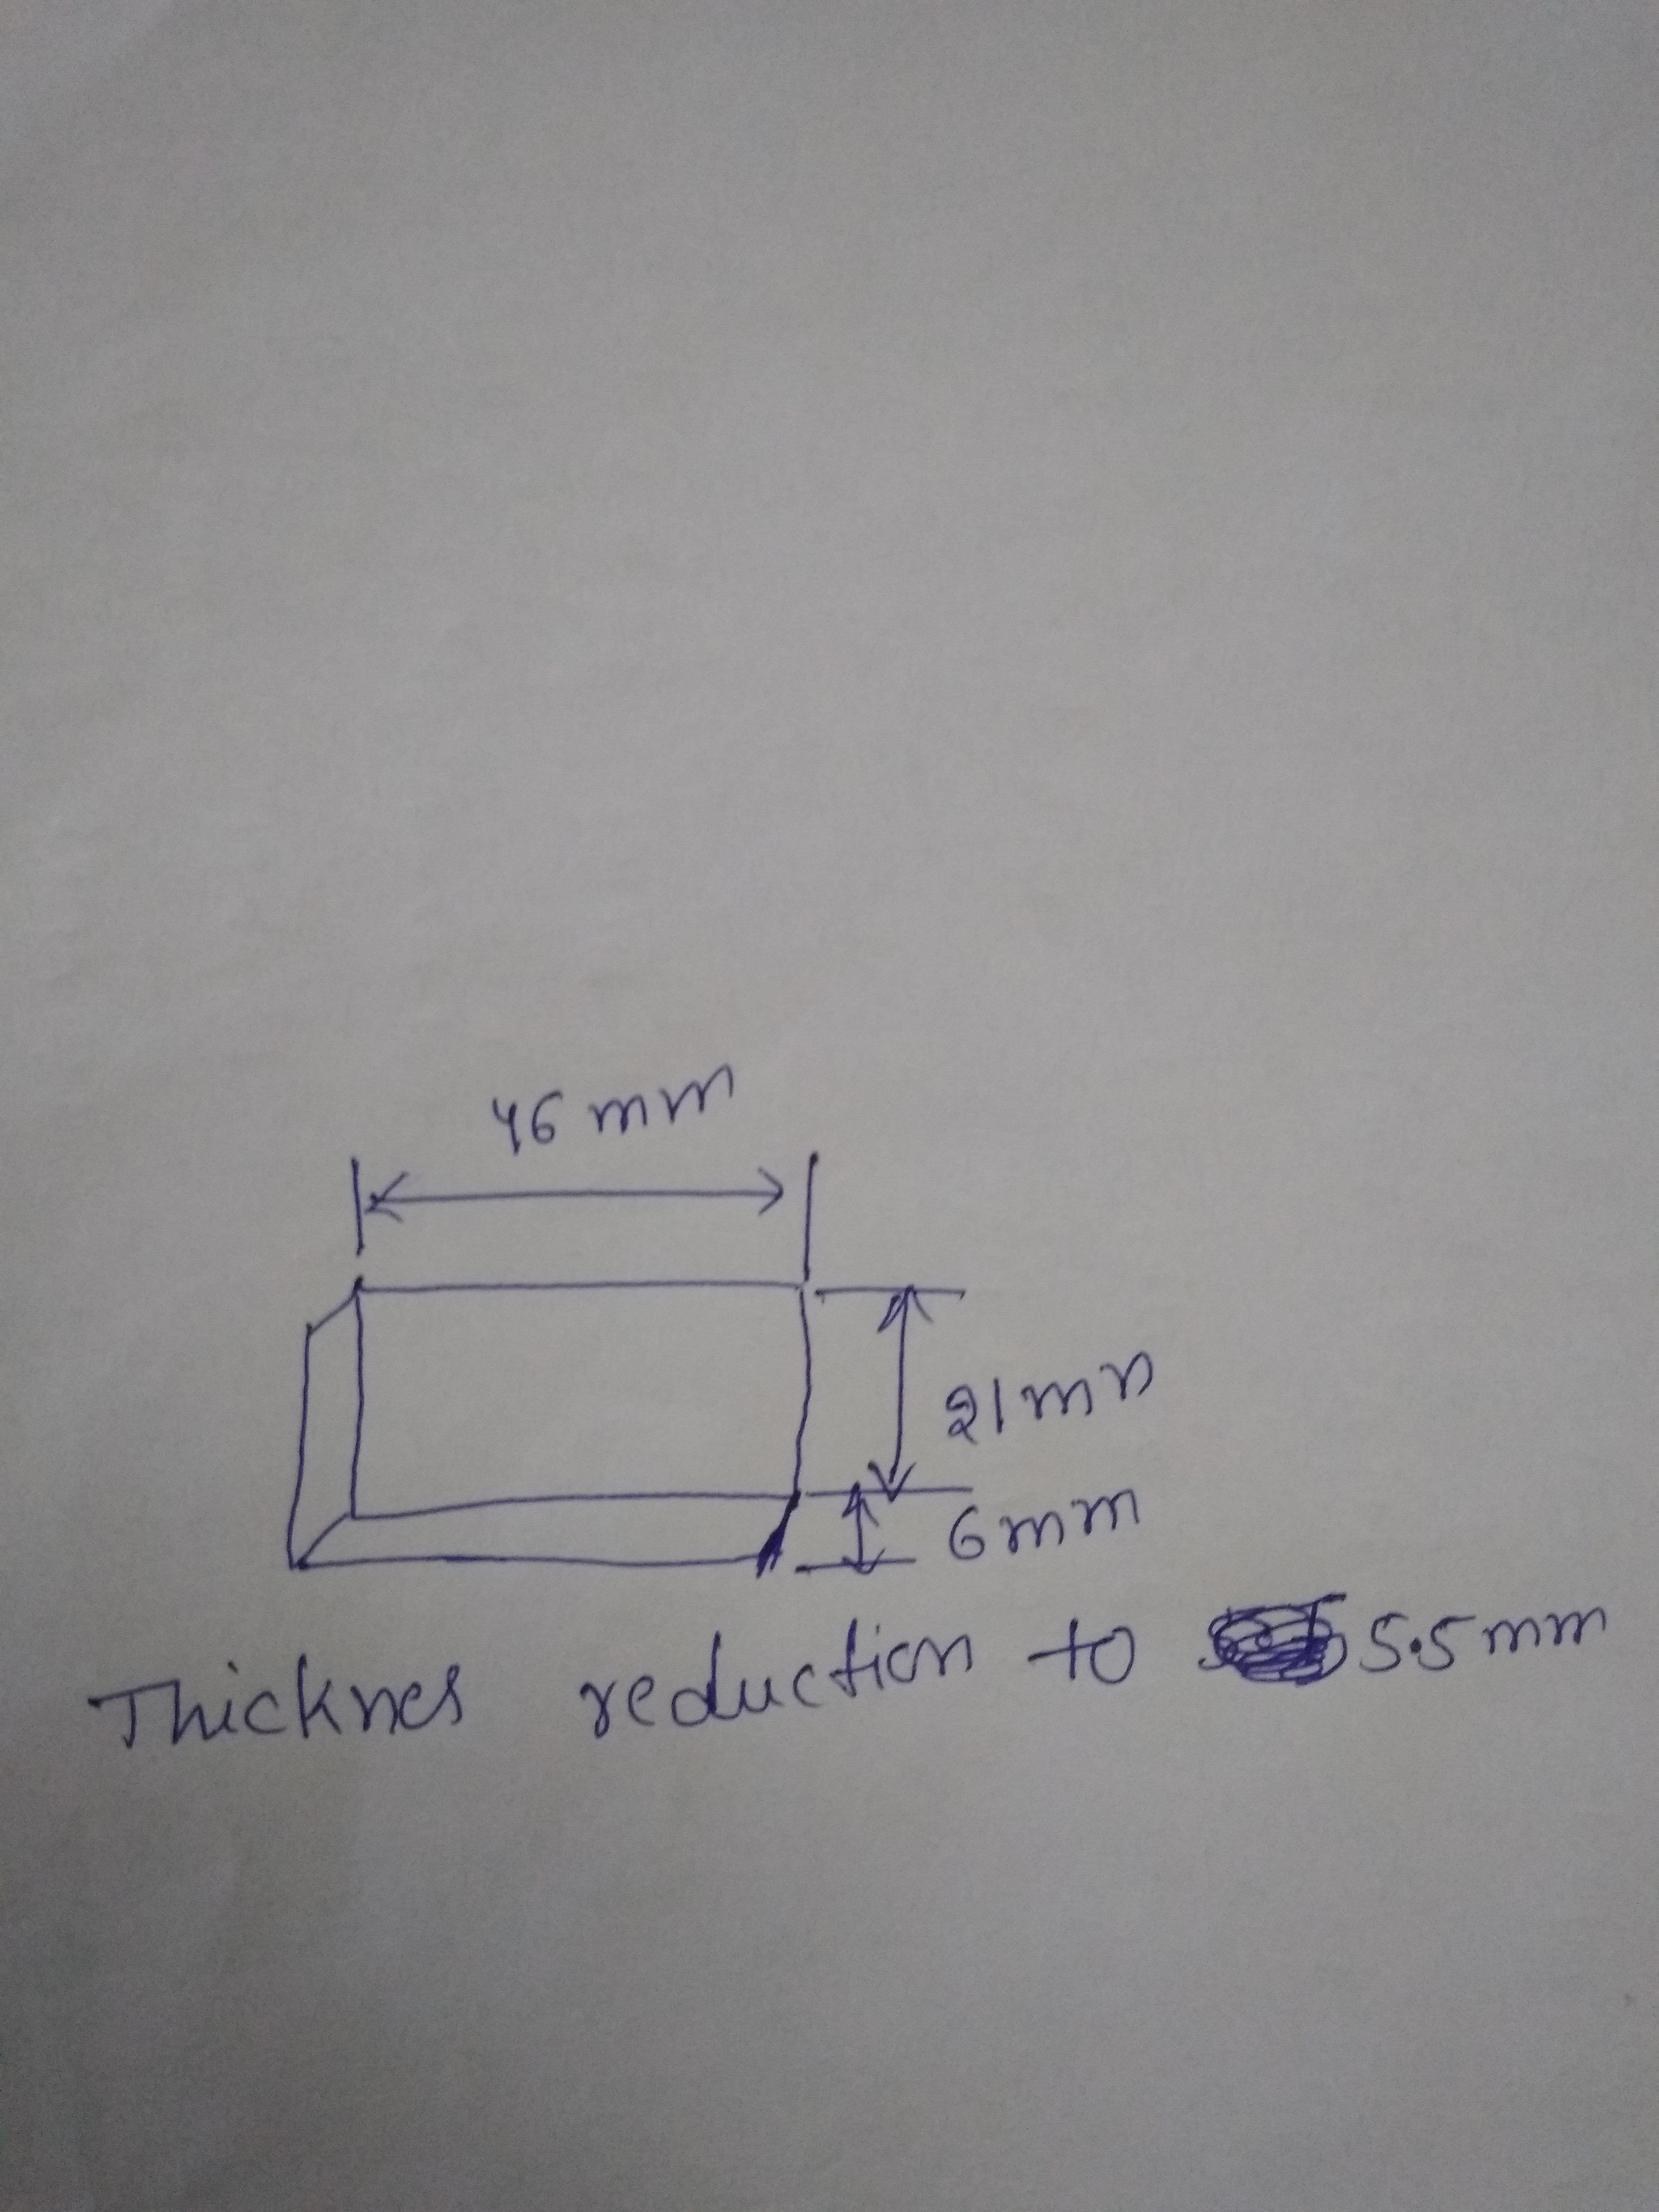 46 mm
21 mm
6 mm
Thicknes reduction to 5.5 mm